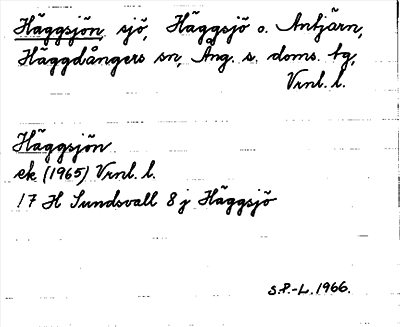 Häggsjön, sjö, Häggsjö o. Antjärn,
Häggdångers sn, Ång. s. doms. tg,
Vrnl. l.
Häggsjön
ek (1965) Vrnl. l.
17 H Sundsvall 8 j Häggsjö
S.P.-L. 1966.